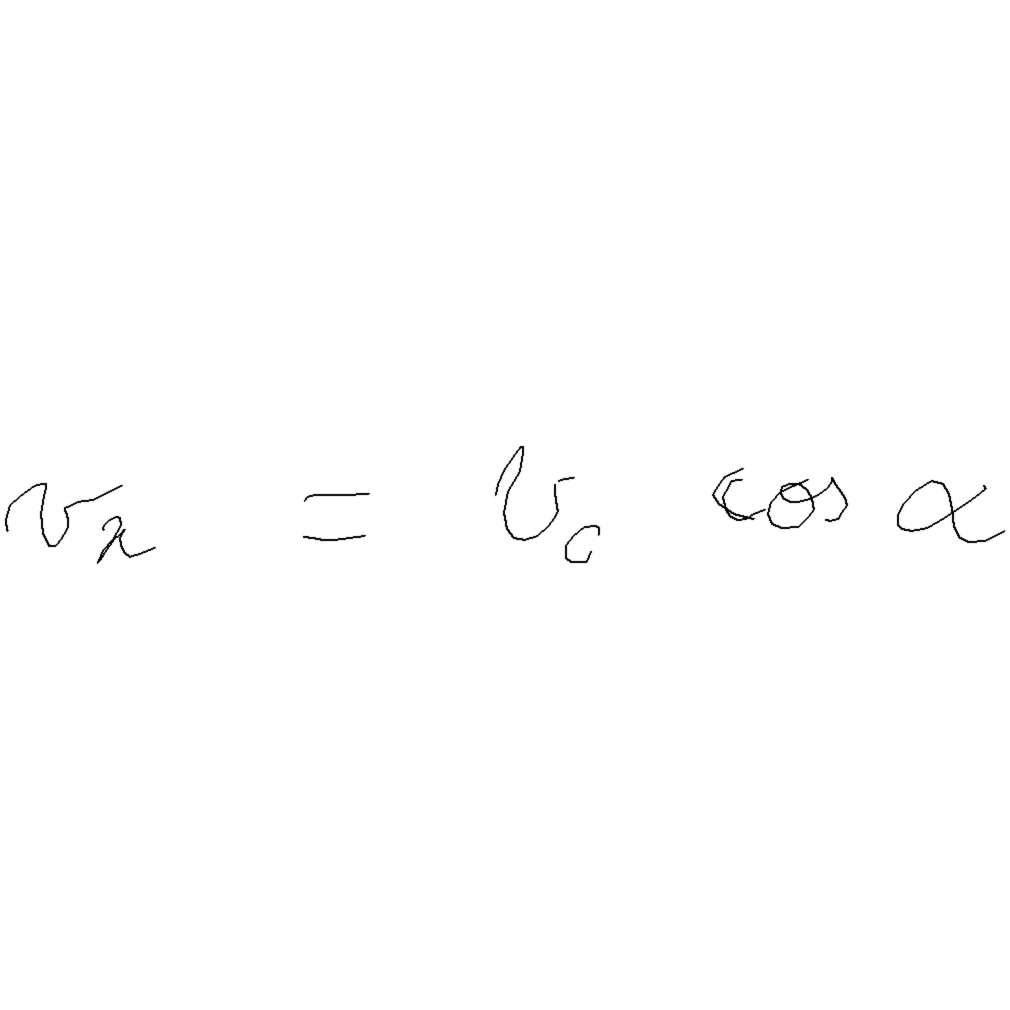 v_x = v_0 cos α